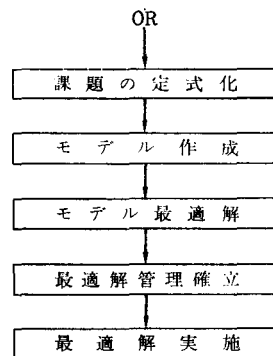 OR
課題の定式化
モデル作成
モデル最適解
最適解管理確立
最適解実施